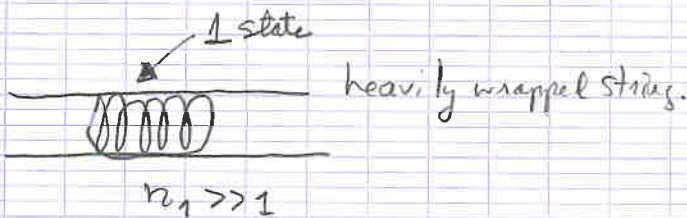 1 state
heavily wrapped string.
n₁ >> 1